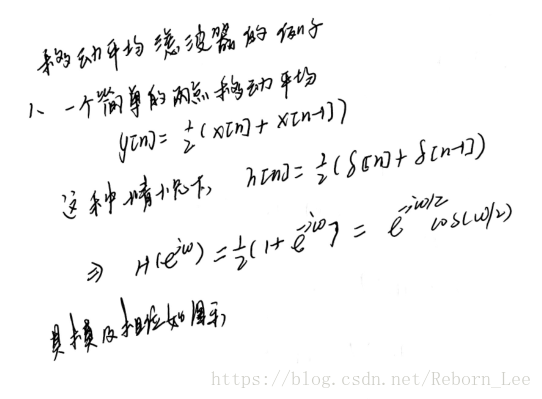 移动平均滤波器的例子
1、一个简单的两点移动平均
y[n] = 1/2 (x[n] + x[n-1])
这种情况下, h[n] = 1/2 (δ[n] + δ[n-1])
⇒ H(e^{jω}) = 1/2 (1 + e^{-jω}) = e^{-jω/2} cos(ω/2)
其模及相位如图示,
https://blog.csdn.net/Reborn_Lee